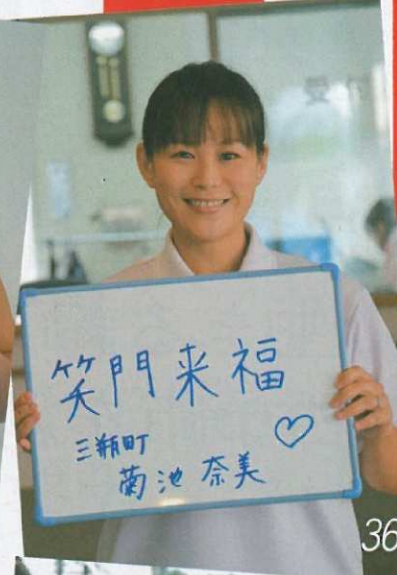 笑門来福
三瓶町
菊池奈美
36